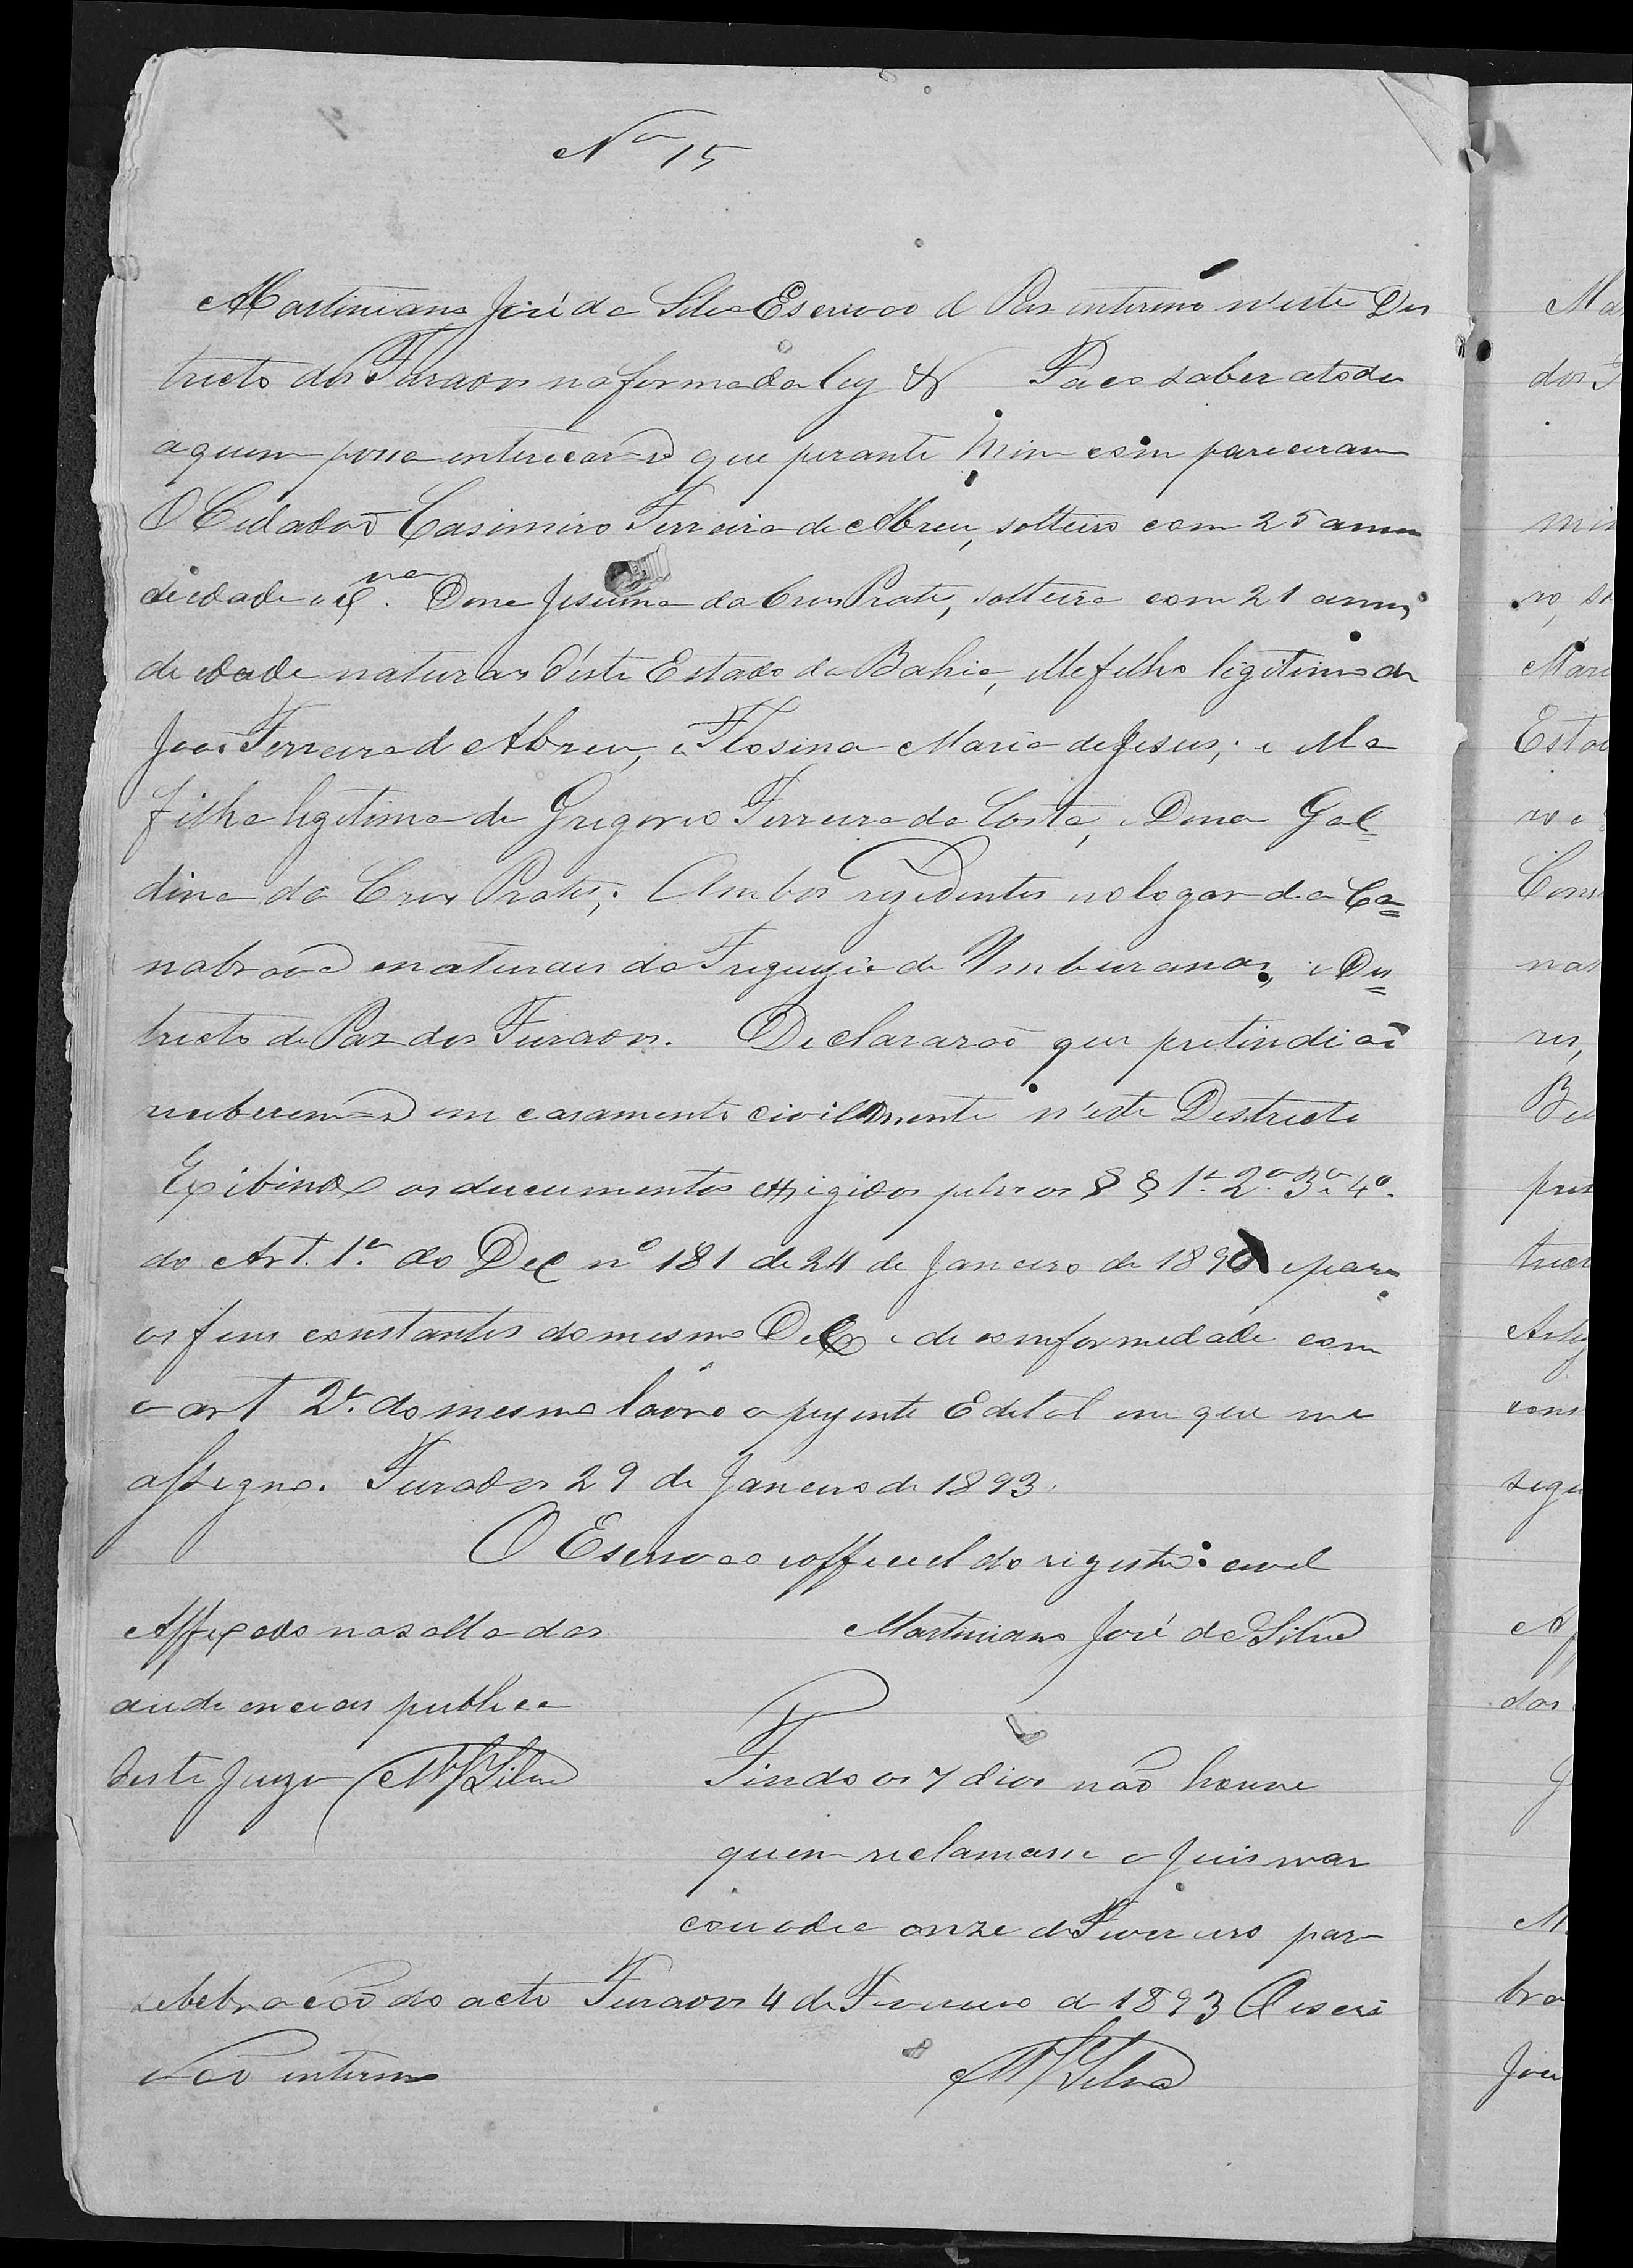 Nº 15
Martiniano José da Silva Escrivao de Paz interino n'este Dis
tricto dos Furados na forma da ley & Faco saber a todos
aquem possa interecar-se que perante mim com pareceram
O Cidadaõ Casimiro Ferreira de Abreu, solteiro com 25 annos
de edade e Exma. Dona Jesuina da Crus Prates, solteira com 21 annos
de edade naturaes d'este Estado da Bahia, elle filho legitimo de
Joaõ Ferreira d Abreu, e Flosina Maria de Jesus; e ella
filha legitima de Gregorio Ferreira da Costa, e Dona Gal=
dina da Crus Prates; Ambos rezidentes no logar da Ca=
nabrava e naturaes da Freguezia de Umburanas, e Dis=
tricto de Paz dos Furados. Declararaõ que pretindiaõ
receberem-se em casamento civilmente n'este Destricto
Exibindo os ducumentos exsigidos pelos os § § 1º 2º 3º 4º.
do Art. 1º do Dec nº 181 de 24 de Janeiro de 1890 e para
os fins constantes do mesmo Dec e de comformedade com
o art 2º. do mesmo lavro o prezente Edital em que me
assigno. Furados 29 de Janeiro de 1893.
O Escrivao e official do registro civil
Affixado na salla das Martiniano José da Silva
audiencias publica
deste Juizo MJSilva Findo os 7 dias não houve
quem reclamasse o Juis mar
cou o dia onze de Fevereiro para
selebracaõ do acto Furados 4 de Fevereiro de 1893 O escri
vaõ interino MJSilva
Ma
dos F
min
ro, so
Mari
Estad
ro e
Cons
nas
res,
pres
tric
Artig
cons
segu
Af
das
J
M
bra